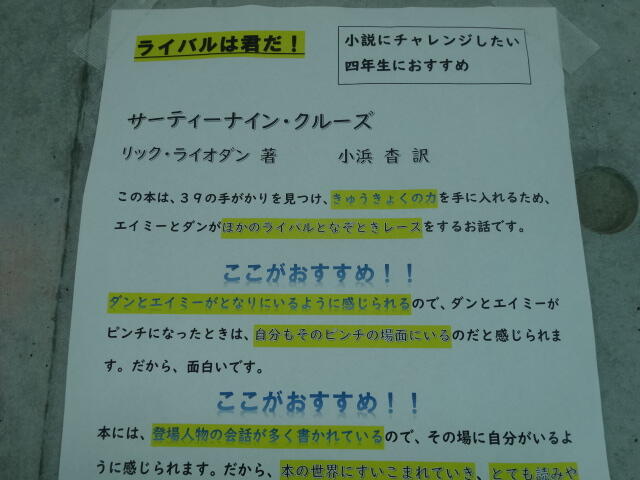 ライバルは君だ！
小説にチャレンジしたい
四年生におすすめ
サーティーナイン・クルーズ
リック・ライオダン 著 小浜 杳 訳
この本は、３９の手がかりを見つけ、きゅうきょくの力を手に入れるため、
エイミーとダンがほかのライバルとなぞときレースをするお話です。
ここがおすすめ！！
ダンとエイミーがとなりにいるように感じられるので、ダンとエイミーが
ピンチになったときは、自分もそのピンチの場面にいるのだと感じられま
す。だから、面白いです。
ここがおすすめ！！
本には、登場人物の会話が多く書かれているので、その場に自分がいるよ
うに感じられます。だから、本の世界にすいこまれていき、とても読みや